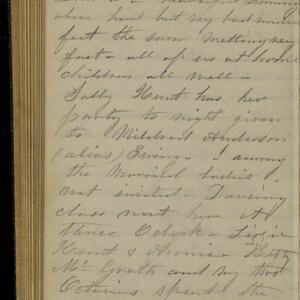 above hard but very bad under
feet the snow melting very
fast - all of us at home
children all well -
Sally Hunt has her
party to night given
to Mildred Anderson
(alias) Ewing - I among
the Married ladies
not invited - Dancing
class met here at
three O clock - Lizzie
Hunt & Annie - Betty
Mc Grath and my two
Octavias spent the